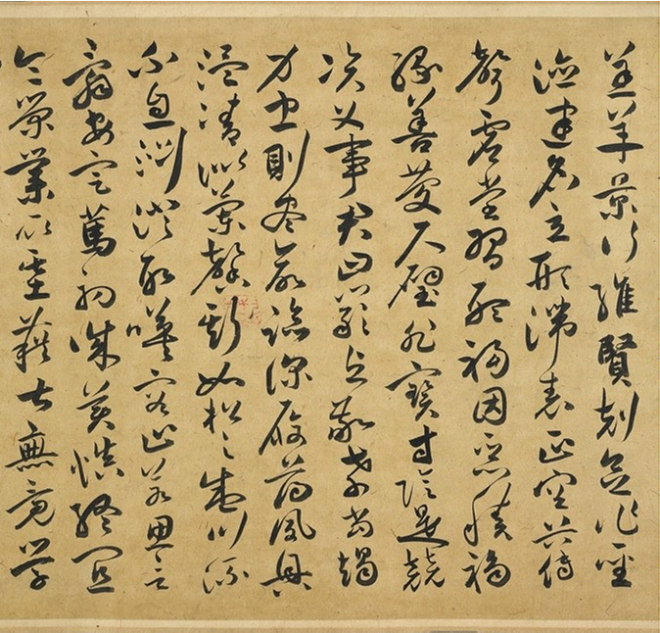 羔羊景行維賢剋念作聖
德建名立形端表正空谷傳
聲虛堂習聽禍因惡積福
緣善慶尺璧非寶寸陰是競
資父事君曰嚴與敬孝當竭
力忠則盡命臨深履薄夙興
溫清似蘭馨斯如松之盛川流
不息淵澄取暎容止若思言
辭安定篤初誠美慎終宜
令榮業所基藉甚無竟學